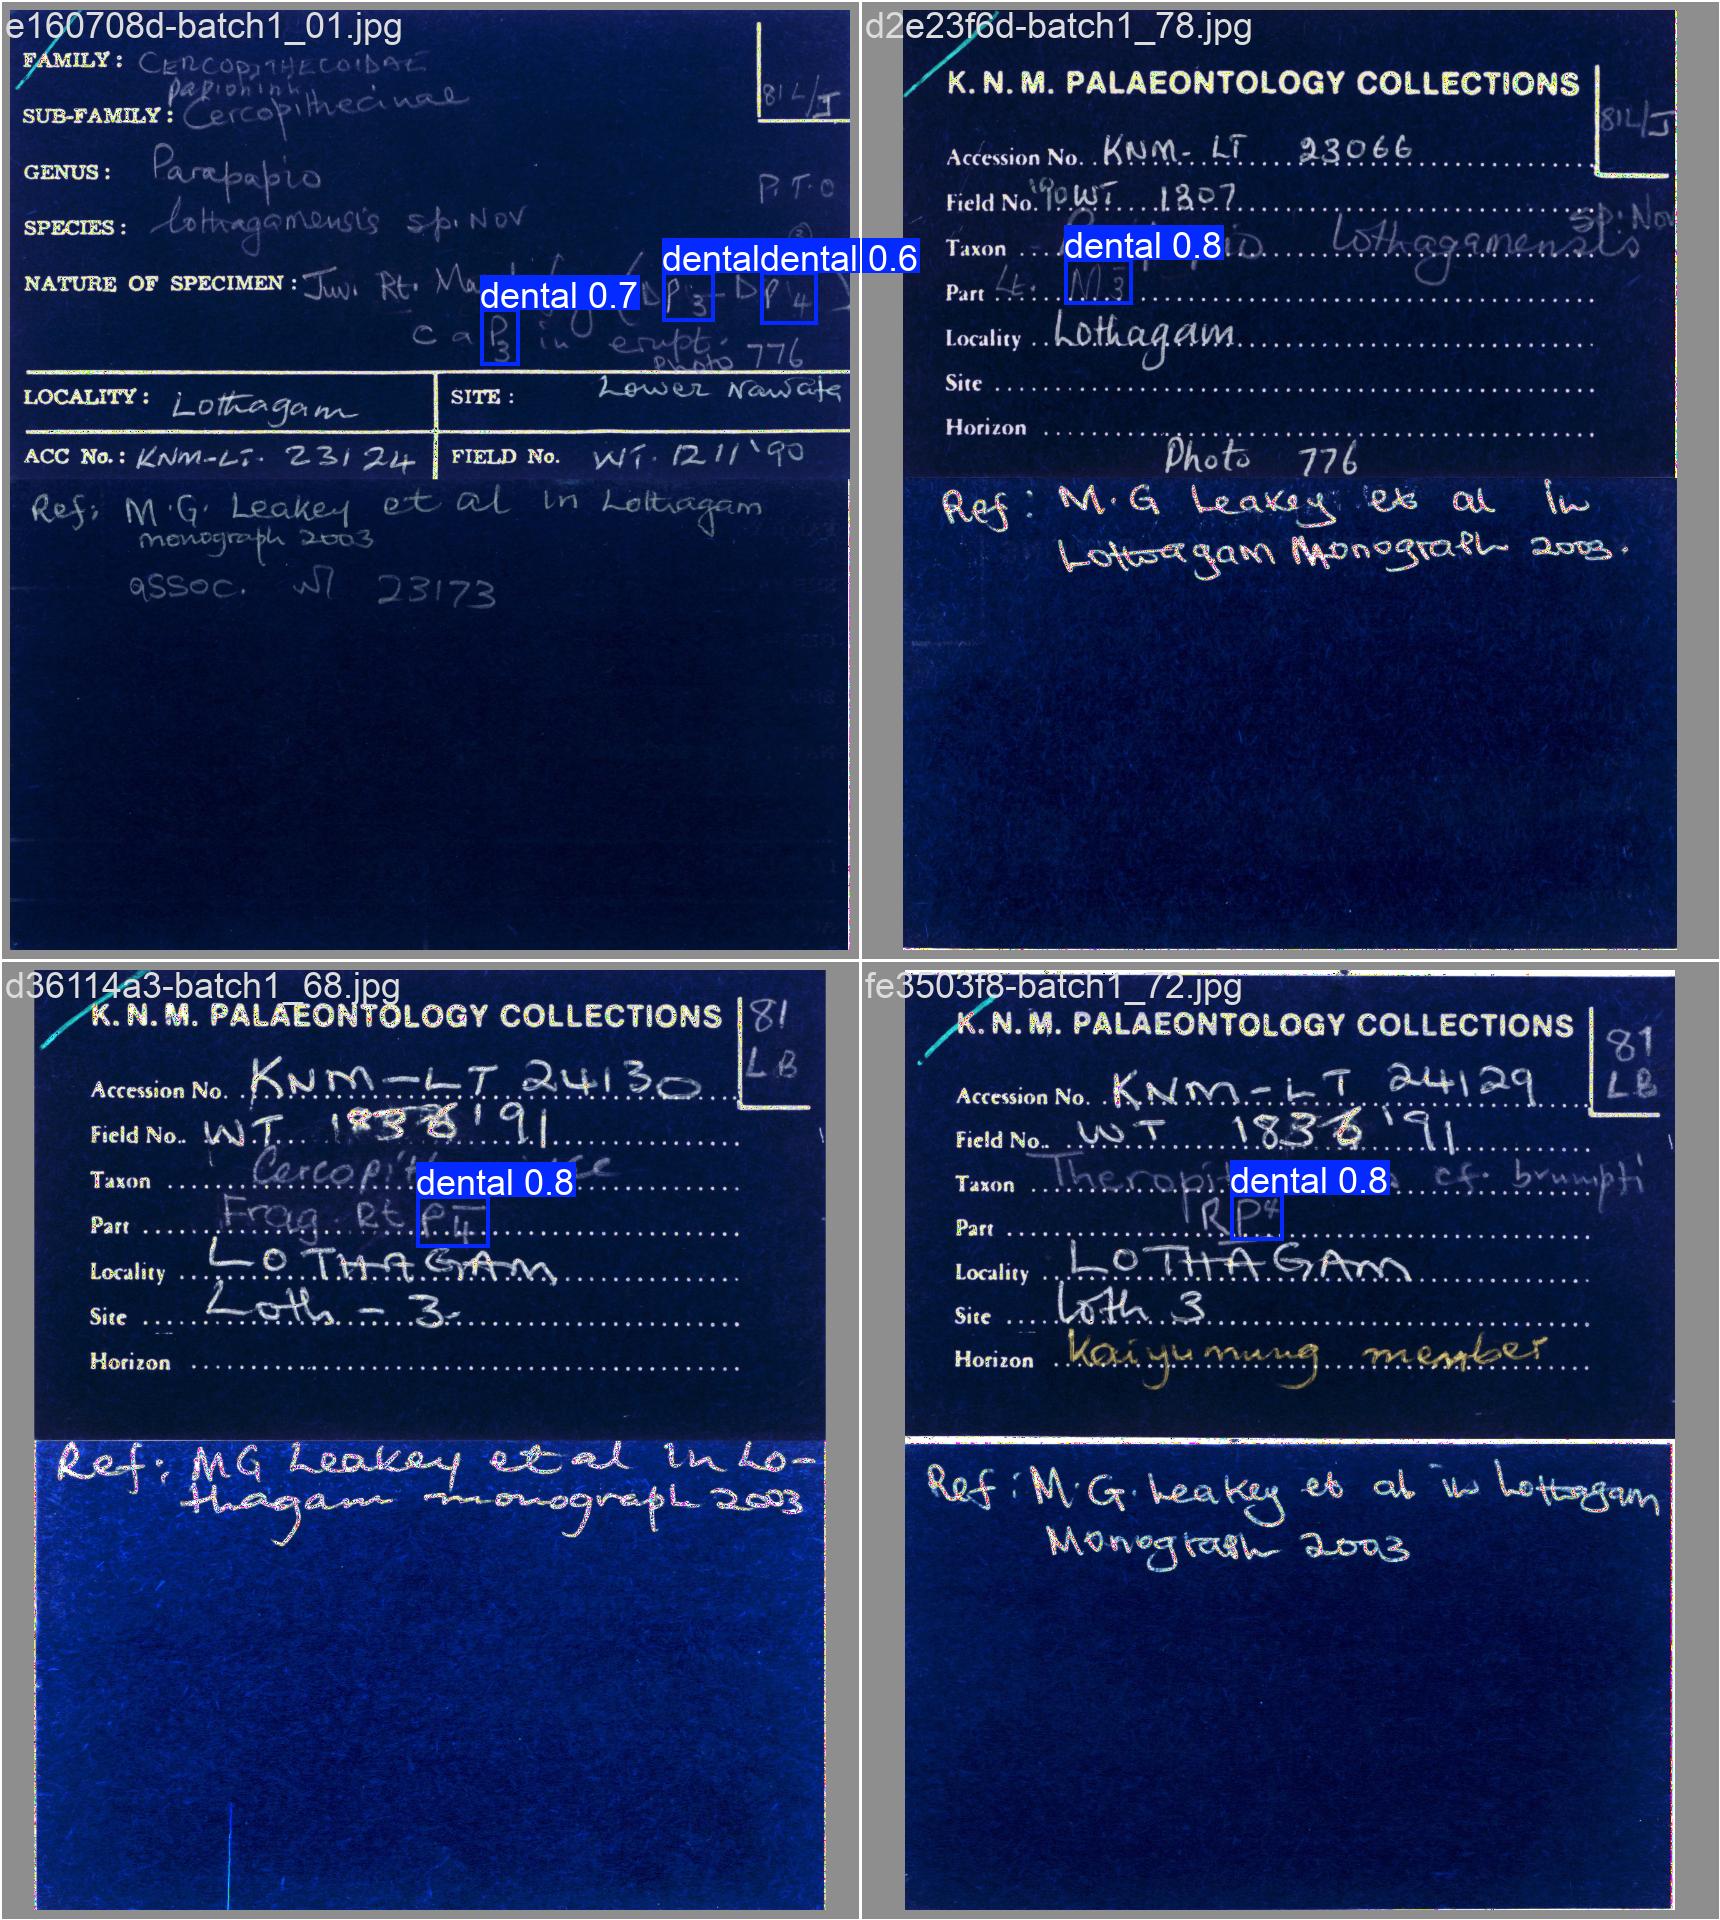 e160708d-batch1_01.jpg
FAMILY: CERCOPITHECOIDAE
Papionini
SUB-FAMILY: Cercopithecinae
81L/J
GENUS: Parapapio
P.T.O
SPECIES: lothagamensis sp. Nov
dental dental 0.6
NATURE OF SPECIMEN: Juv. Rt. P 3 - D P 4
dental 0.7
c a P 3 in erupt.
Photo 776
LOCALITY: Lothagam
SITE: Lower Nawata
ACC No.: KNM-LT. 23124
FIELD No. WT. 1211 '90
Ref: M.G. Leakey et al in Lothagam
monograph 2003
assoc. 23173
d2e23f6d-batch1_78.jpg
K.N.M. PALAEONTOLOGY COLLECTIONS
81L/J
Accession No. KNM-LT 23066
Field No. '90 WT 1307
Taxon lothagamensis sp. Nov
dental 0.8
Part Lt. M3
Locality Lothagam
Site
Horizon
Photo 776
Ref: M.G Leakey et al In
Lothagam Monograph 2003.
d36114a3-batch1_68.jpg
K.N.M. PALAEONTOLOGY COLLECTIONS
81
LB
Accession No. KNM-LT 24130
Field No. WT 1836 '91
Taxon
dental 0.8
Part Frag Rt P4
Locality LOTHAGAM
Site Loth-3.
Horizon
Ref: MG Leakey et al In Lo-
thagam monograph 2003
fe3503f8-batch1_72.jpg
K.N.M. PALAEONTOLOGY COLLECTIONS
81
LB
Accession No. KNM-LT 24129
Field No. WT 1836 '91
Taxon cf. brumpti
dental 0.8
Part R P4
Locality LOTHAGAM
Site Loth 3
Horizon Kaiyumung member
Ref: M.G. Leakey et al in Lothagam
Monograph 2003